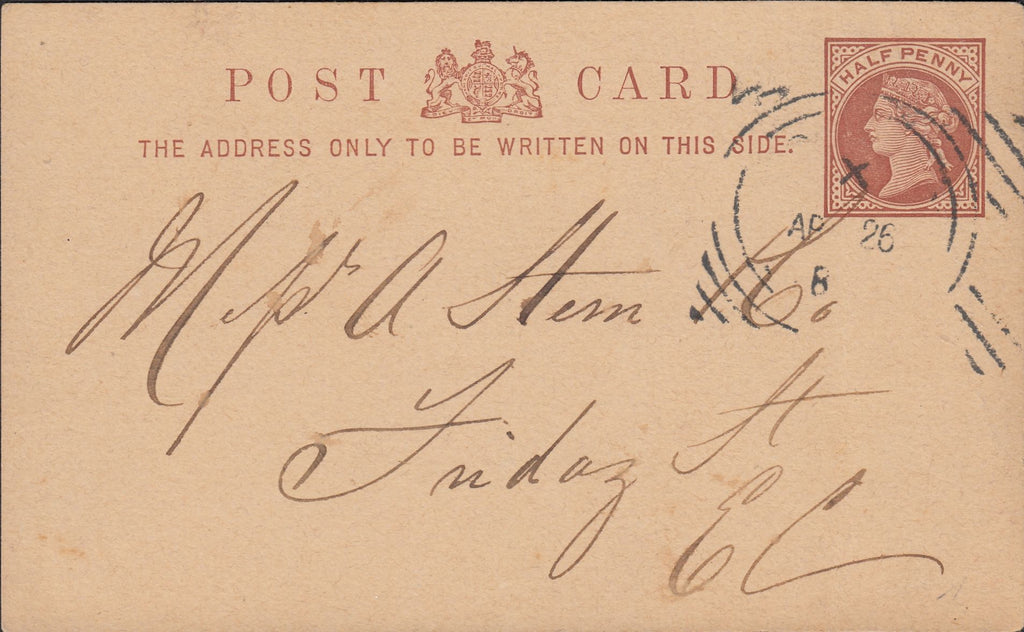 POST CARD
THE ADDRESS ONLY TO BE WRITTEN ON THIS SIDE.
HALF PENNY
X
AP 26
Messrs A Stern & Co
Friday St
E C